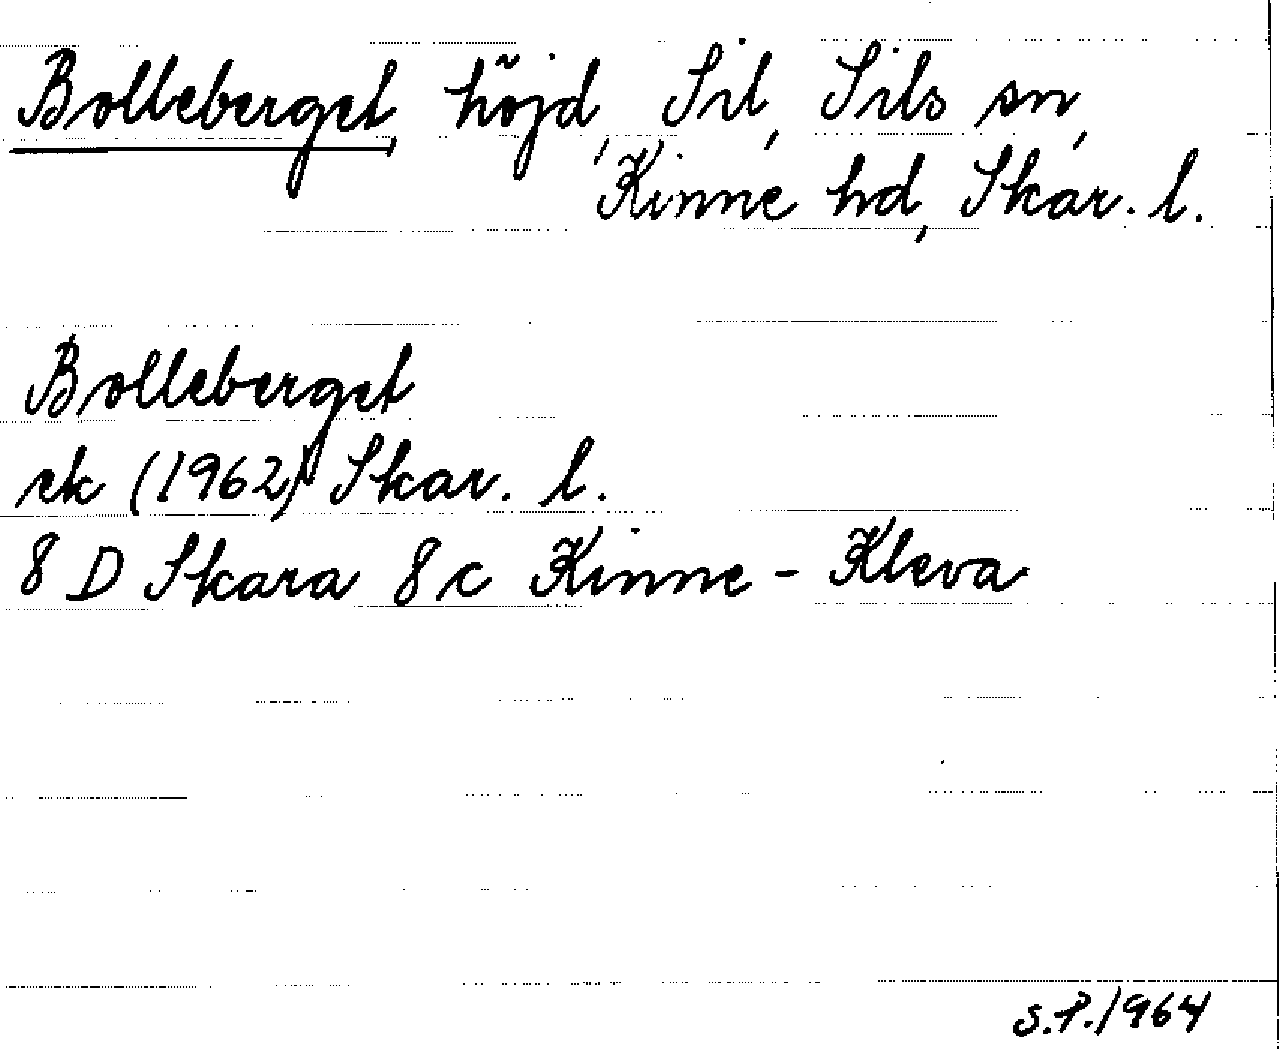 Bolleberget, höjd, Sil, Sils sn,
Kinne hd, Skar. l.
Bolleberget
ek (1962) Skar. l.
8 D Skara 8 c Kinne - Kleva
S.P. 1964